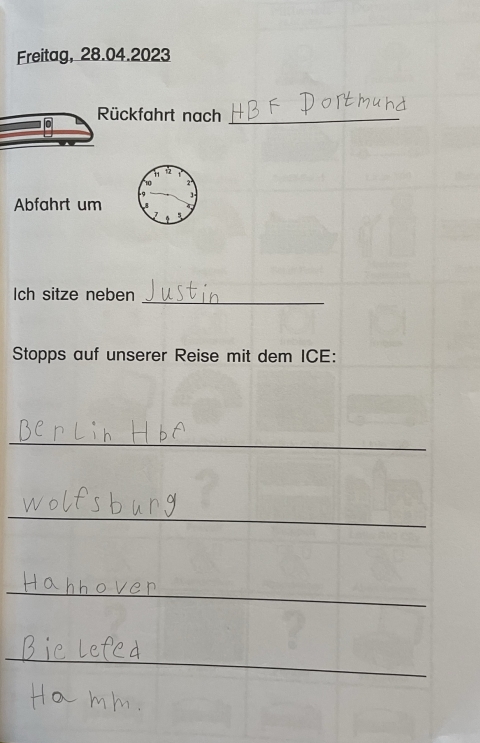 Freitag, 28.04.2023
Rückfahrt nach HBF Dortmund
Abfahrt um
12 1 2 3 4 5 6 7 8 9 10 11
Ich sitze neben Justin
Stopps auf unserer Reise mit dem ICE:
Berlin Hbf
Wolfsburg
Hannover
Bielefed
Hamm.